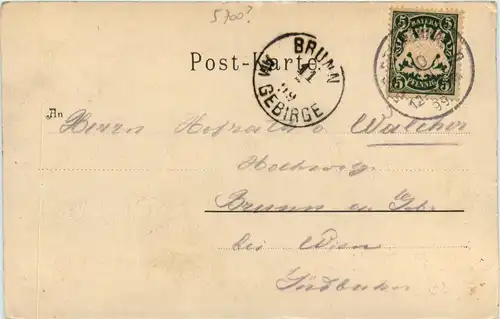 5700?
BAYERN
5 5
PFENNIG
Post-Karte.
BRUNN
11
99
AM
GEBIRGE
An
Herrn Hofrath v Walcher
Hochwolg
Brunn a/ Geb.
bei Wien
Südbahn